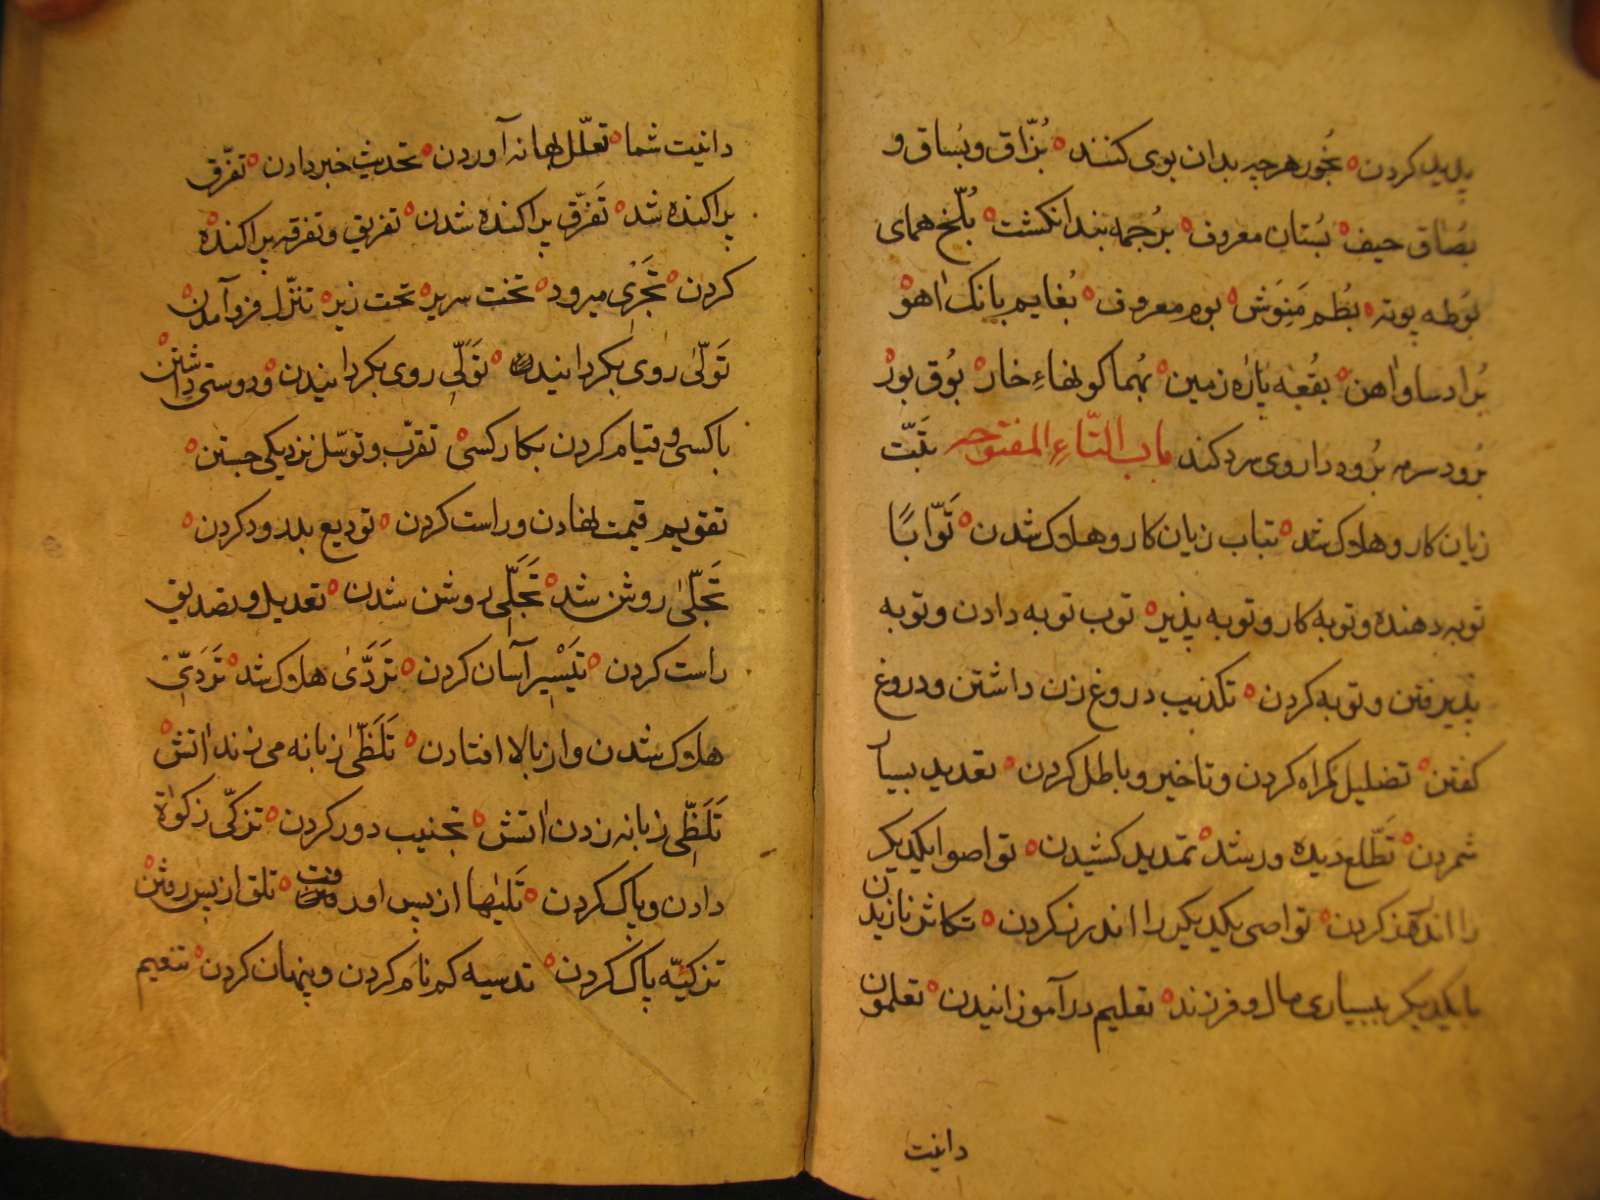 پدید کردن بخور هرچه بدان بوی کنند بُزّاق و بُساق و
بُصاق حیف بُستان معروف بُرجمه بند انکشت بُلَّخ همای
بُوطه بوته بُطُم مَنِوَش بوم معروف بُغایم بانک اهو
بُرادسا واهن بقُعِه پاره زمین بُهما کو لهاءِ خار بُوق بوز
بُرود سرمه بُرود داروی سرد کند باب التّاءِ المفتوحه تَبَّت
زیان کار و هلاک شد تباب زیان کار و هلاک شدن تَوّابًا
توبه دهنده و توبه کار و توبه پذیر توب توبه دادن و توبه
پذیرفتن و توبه کردن تکذیب دروغ زن داشتن و دروغ
کفتن تضلیل کمراه کردن و تاخیر و باطل کردن تعدید بسیار
شمردن تَطَّلع دیده ور شد تمدید کشیدن تواصوا یکدیکر
را اندرز کردن تواصی یکدیکر را اندرز کردن تکاثر نازیدن
با یکدیکر ببسیاری مال و فرزند تعلیم در آموزانیدن تعلمون
دانیت
دانیت شما تعلّل بهانه آوردن تحدیث خبر دادن تفرّق
پراکنده شد تَفَرّق پراکنده شدن تفریق و تفرقه پراکنده
کردن تَجَرْی میرود تخت سریر تحت زیر تنزّل فرو آمدن
تَوَلّیٰ روی بکردانید تَوَلّی روی بکردانیدن و دوستی داشتن
با کسی و قیام کردن بکار کسی تقرّب و توسّل نزدیکی جستن
تقویم قیمت نهادن و راست کردن تودیع بدرود کردن
تَجَلّیٰ روشن شد تَجَلّی روشن شدن تعدیل و تصدیق
راست کردن تَیَسْیر آسان کردن تَرَدَّیٰ هلاک شد تَرَدّی
هلاک شدن و از بالا افتادن تَلَظّیٰ زبانه می زند اتش
تَلَظّی زبانه زدن اتش تجنیب دور کردن تزکّی زکوٰة
دادن و پاک کردن تَلیٰها از پس او رفت تلو از پس رفتن
تزکیّه پاک کردن تدسیه کم نام کردن و پنهان کردن تنعیم